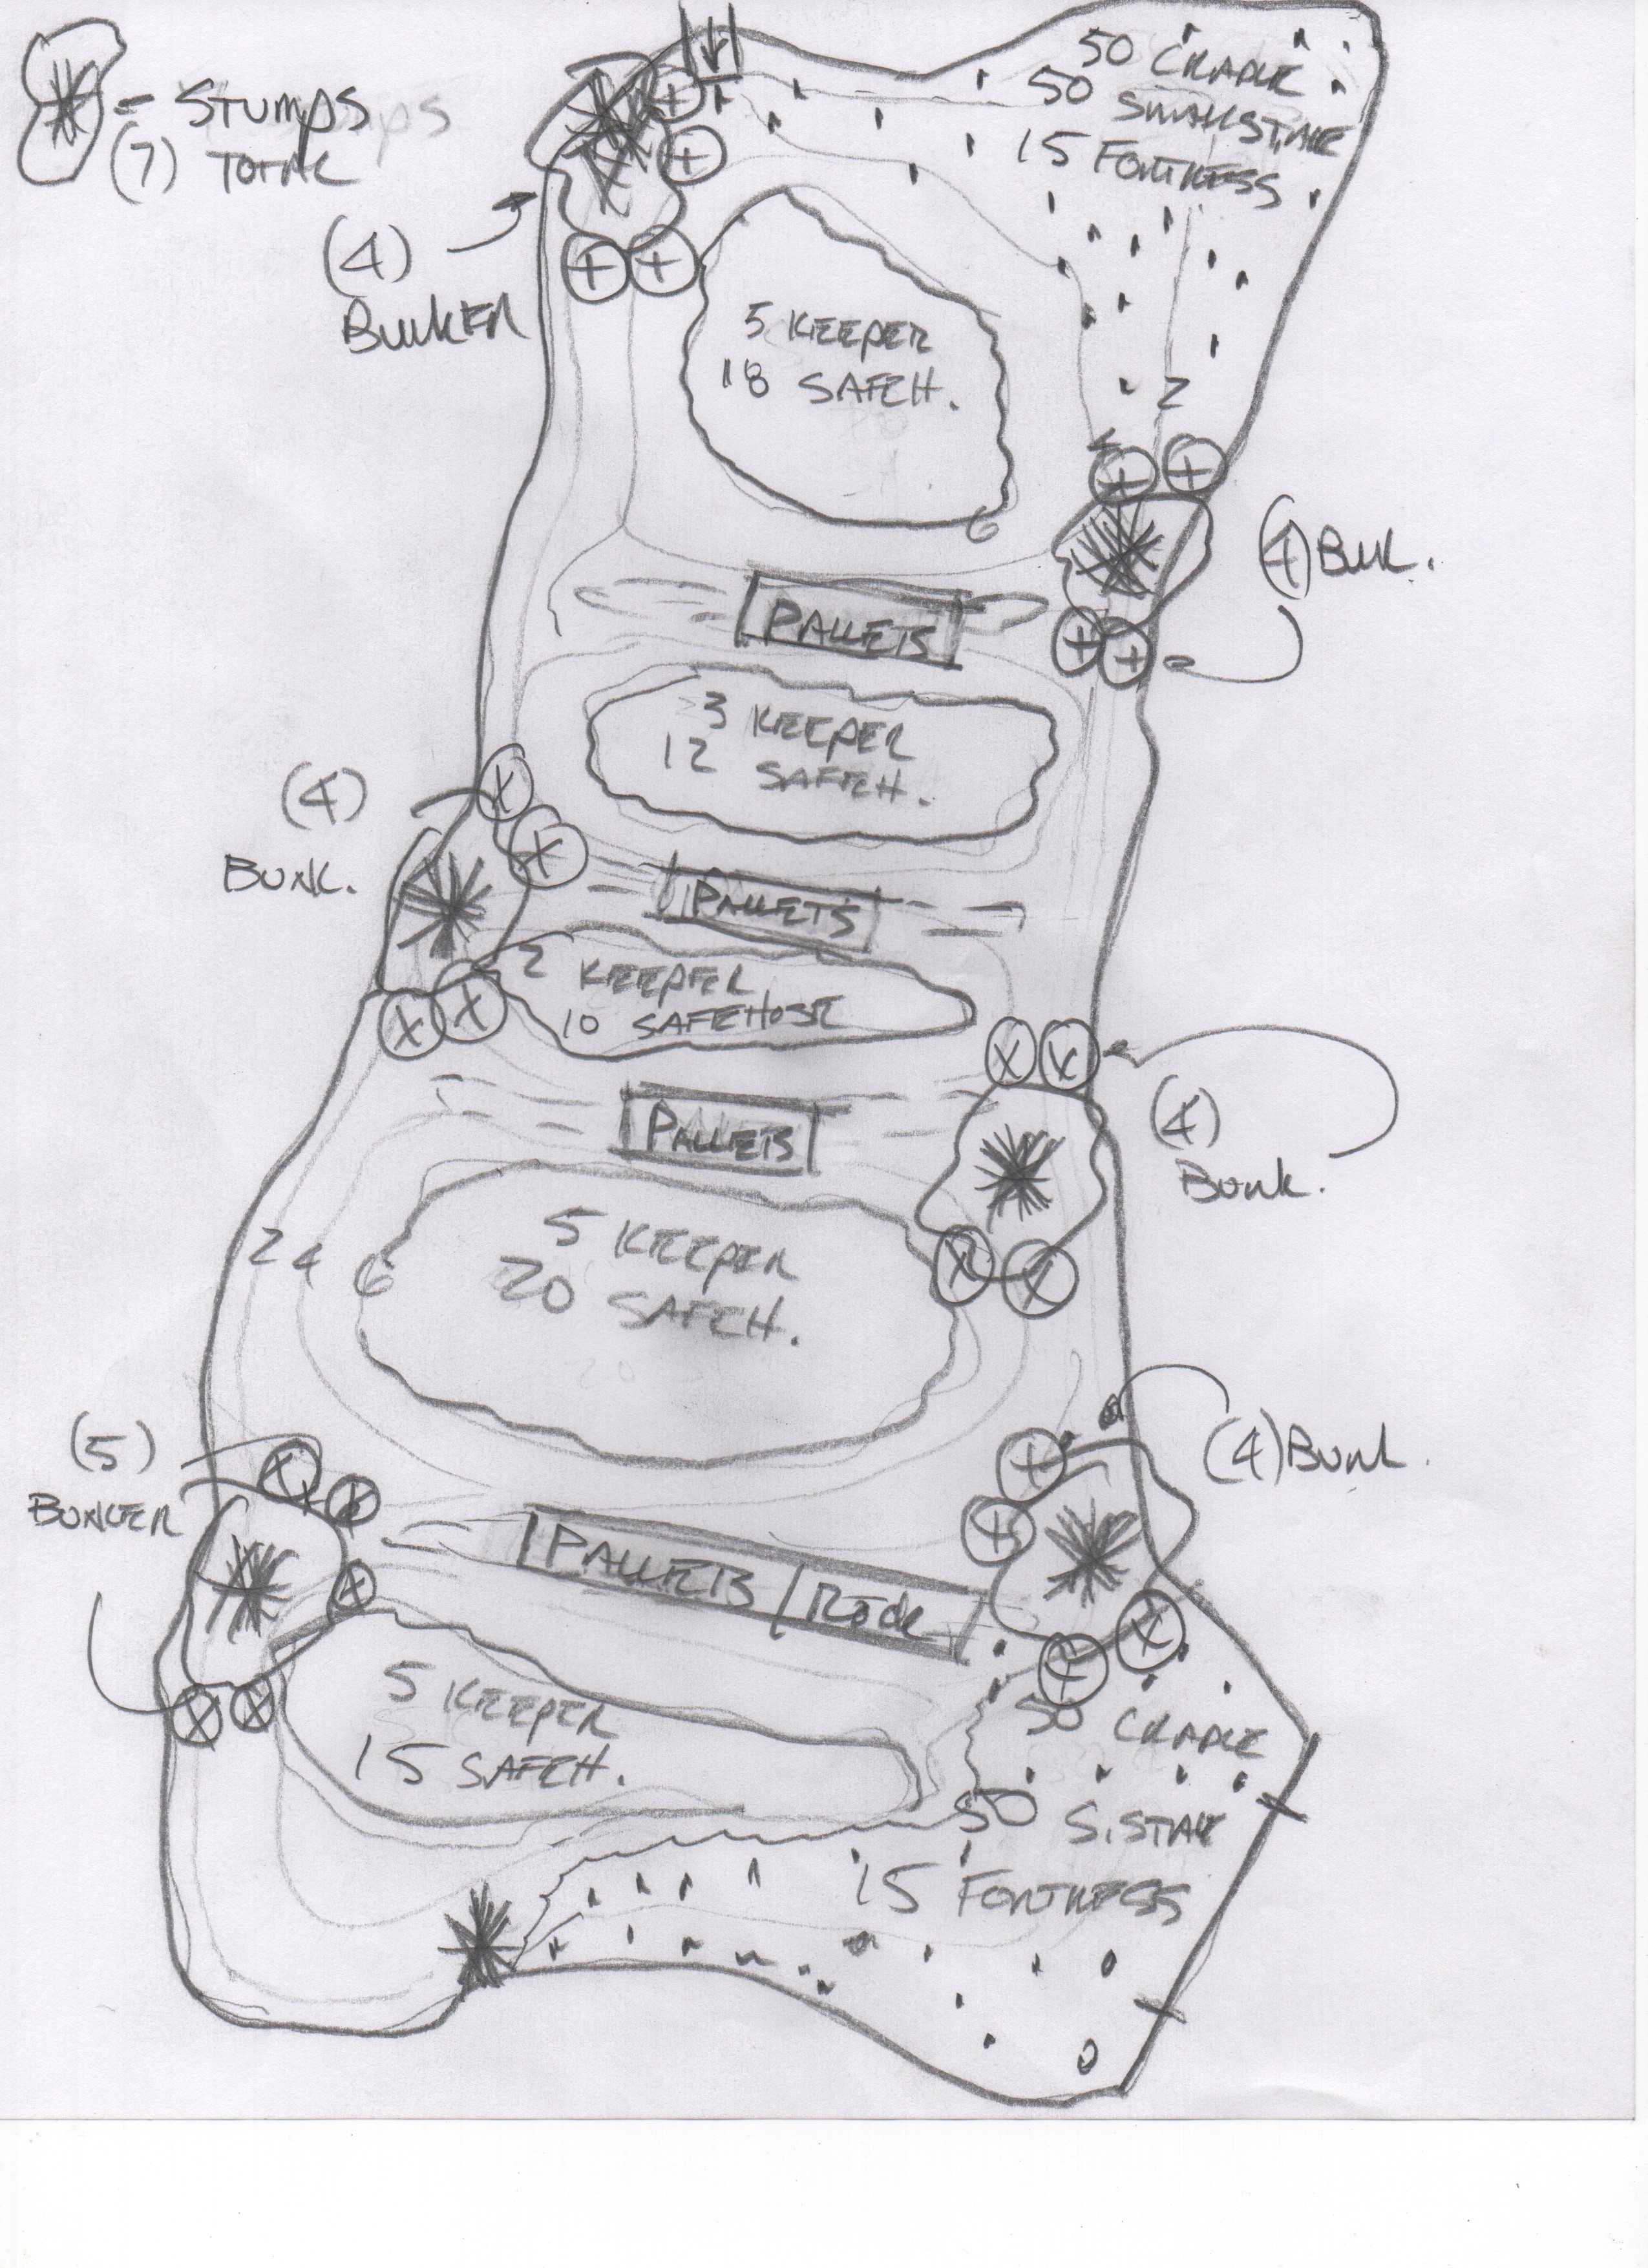 = STUMPS
(7) TOTAL
50 CRADLE
50 SMALL STAKE
15 FORTRESS
(4)
BUNKER
5 KEEPER
18 SAFEH.
2
4
6
(4) BUNK.
PALLETS
3 KEEPER
12 SAFEH.
(4)
BUNK.
PALLETS
2 KEEPER
10 SAFEHOSE
(4)
BUNK.
PALLETS
2 4 6
5 KEEPER
20 SAFEH.
(5)
BUNKER
(4) BUNK.
PALLETS / ROCK
5 KEEPER
15 SAFEH.
50 CRADLE
50 S. STAK
15 FORTRESS